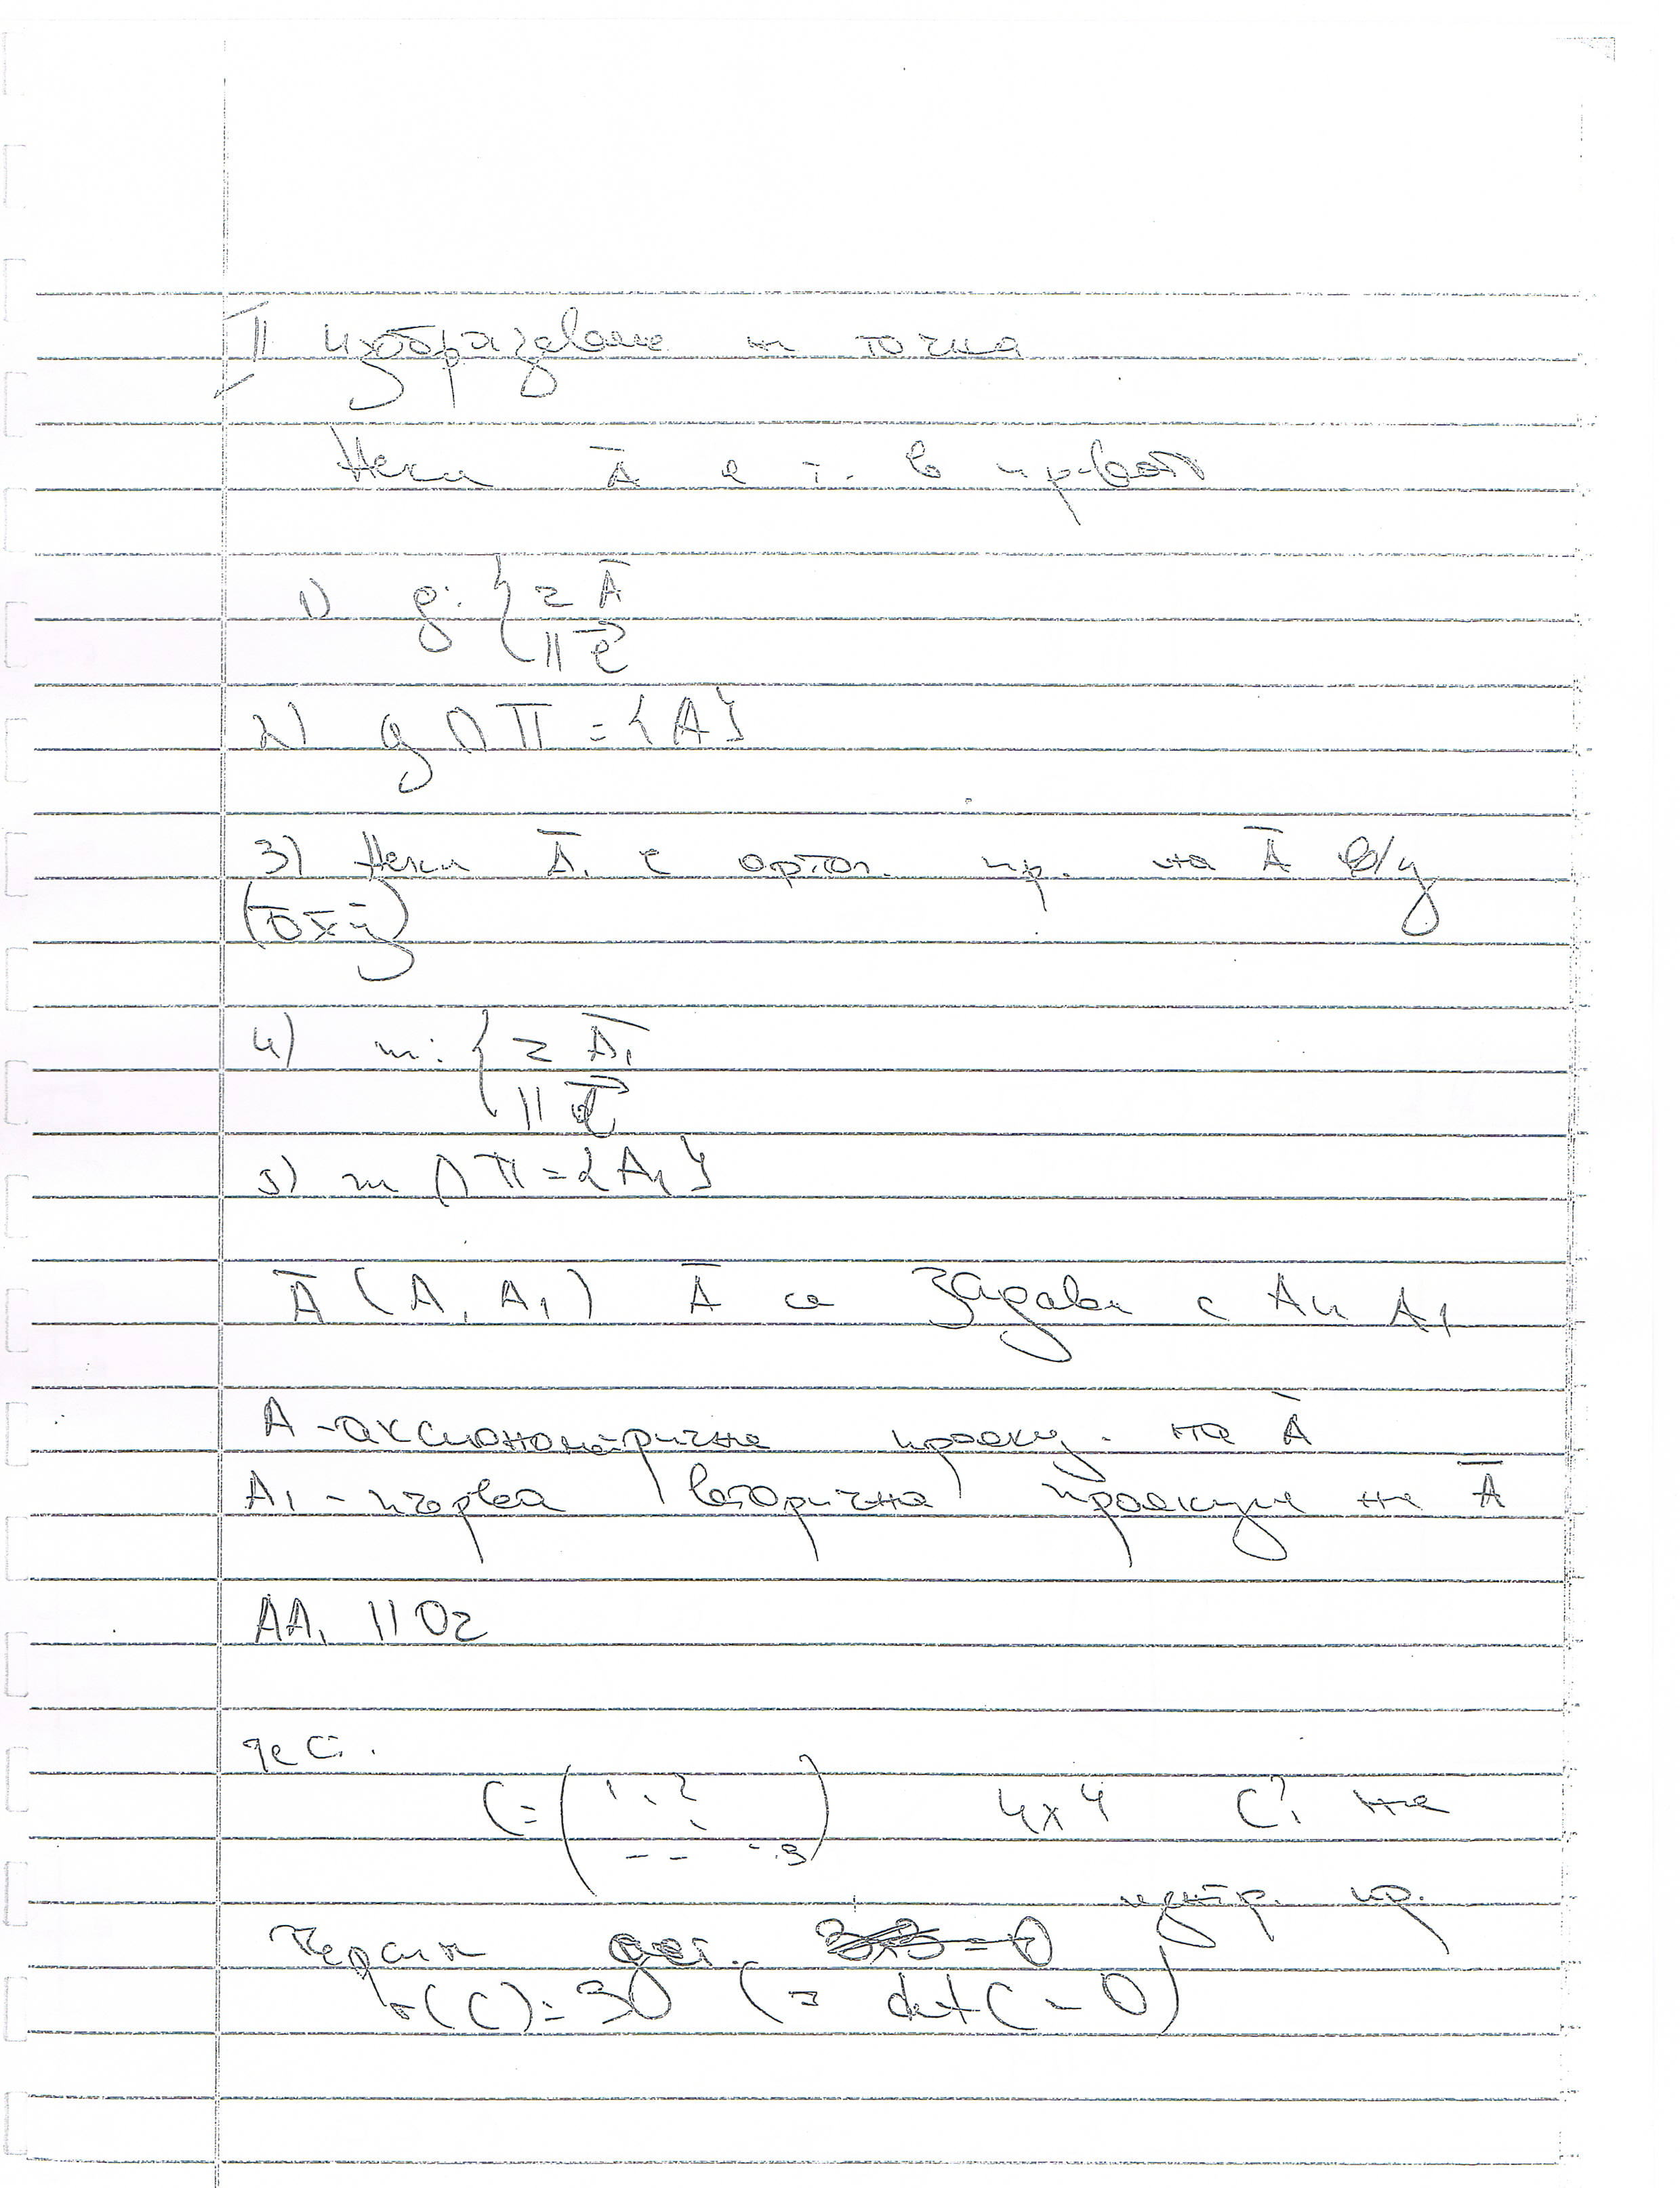 II Изобразяване на точка
Нека Ā е т. в пр-вото
1) g: { z Ā
|| e⃗
2) g ∩ π = {A}
3) Нека Ā₁ е ортог. пр. на Ā в/у
(Ōx̄ȳ)
4) m: { z Ā₁
|| e⃗
5) m ∩ π = {A₁}
Ā (A, A₁) Ā се задава с A и A₁
A - аксонометрична проекц. на Ā
A₁ - първа вторична проекция на Ā
AA₁ || Oz
C = ( ) 4x4 C? на
центр. пр.
r(C) = 3 ( det C = 0)